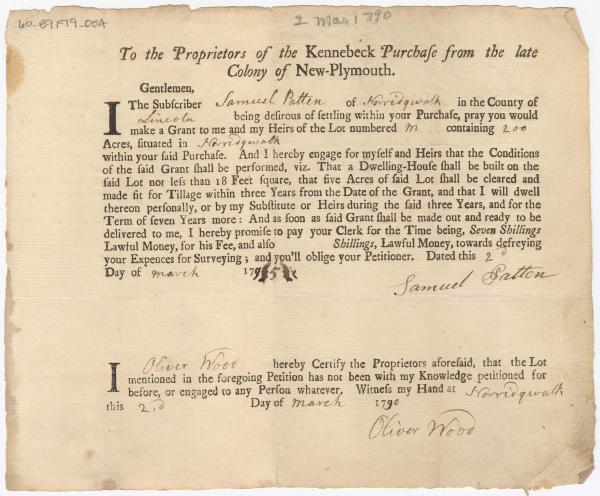 60-89F19-00A
2 Mar 1790
To the Proprietors of the Kennebeck Purchaſe from the late
Colony of New-Plymouth.
Gentlemen,
I The Subſcriber Samuel Patten of Norridgwalk in the County of
Lincoln being deſirous of ſettling within your Purchaſe, pray you would
make a Grant to me and my Heirs of the Lot numbered M containing 200
Acres, ſituated in Norridgwalk
within your ſaid Purchaſe. And I hereby engage for myſelf and Heirs that the Conditions
of the ſaid Grant ſhall be performed, viz. That a Dwelling-Houſe ſhall be built on the
ſaid Lot not leſs than 18 Feet ſquare, that five Acres of ſaid Lot ſhall be cleared and
made fit for Tillage within three Years from the Date of the Grant, and that I will dwell
thereon perſonally, or by my Subſtitute or Heirs during the ſaid three Years, and for the
Term of ſeven Years more: And as ſoon as ſaid Grant ſhall be made out and ready to be
delivered to me, I hereby promiſe to pay your Clerk for the Time being, Seven Shillings
Lawful Money, for his Fee, and alſo Shillings, Lawful Money, towards defreying
your Expences for Surveying; and you'll oblige your Petitioner. Dated this 2d
Day of march 179
Samuel Patten
I Oliver Wood hereby Certify the Proprietors aforeſaid, that the Lot
mentioned in the foregoing Petition has not been with my Knowledge petitioned for
before, or engaged to any Perſon whatever. Witneſs my Hand at Norridgwalk
this 2d Day of march 1790
Oliver Wood